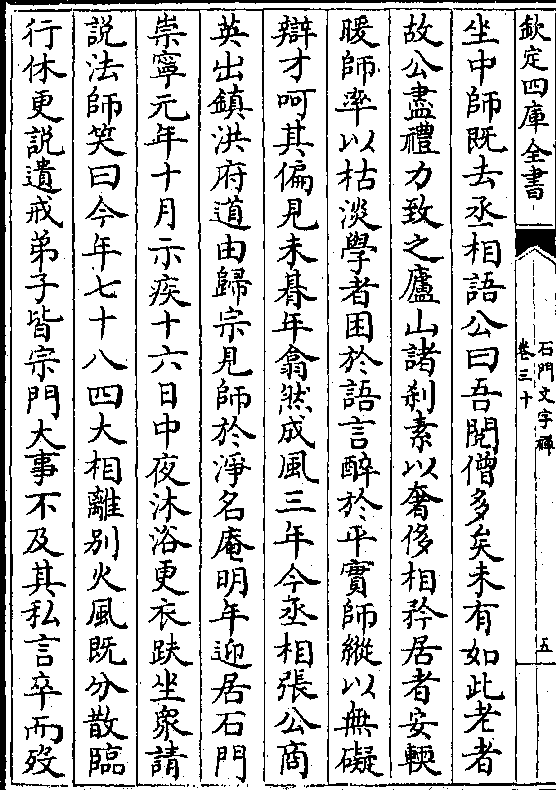 欽定四庫全書
石門文字禪
卷三十
五
坐中師既去丞相語公曰吾閱僧多矣未有如此老者
故公盡禮力致之廬山諸刹素以奢侈相矜居者安輭
暖師率以枯淡學者困於語言醉於平實師縱以無礙
辯才呵其偏見未朞年翕然成風三年今丞相張公商
英出鎮洪府道由歸宗見師於淨名庵明年迎居石門
崇寧元年十月示疾十六日中夜沐浴更衣趺坐衆請
說法師笑曰今年七十八四大相離別火風既分散臨
行休更說遺戒弟子皆宗門大事不及其私言卒而歿